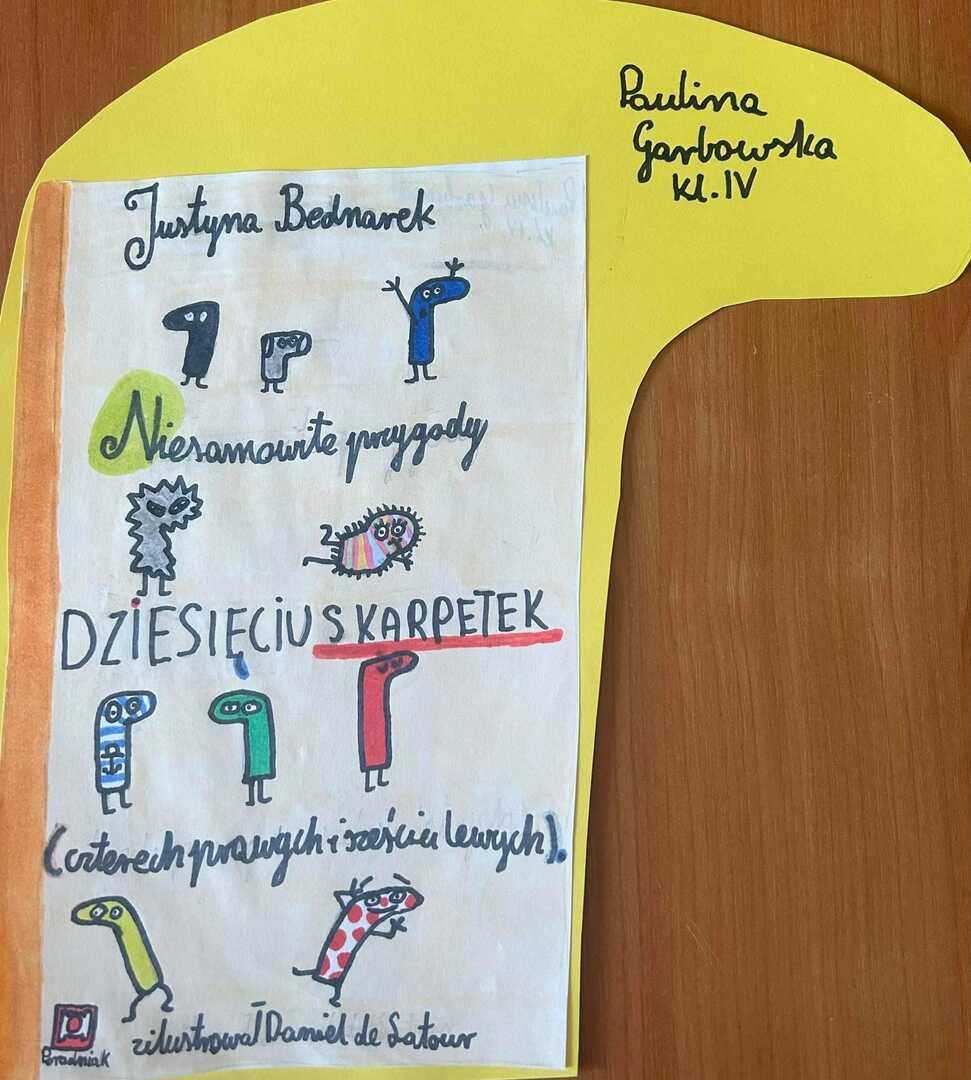 Paulina
Garbowska
kl. IV
Justyna Bednarek
Niesamowite przygody
DZIESIĘCIU SKARPETEK
(czterech prawych i sześciu lewych).
zilustrował Daniel de Latour
Poradniak